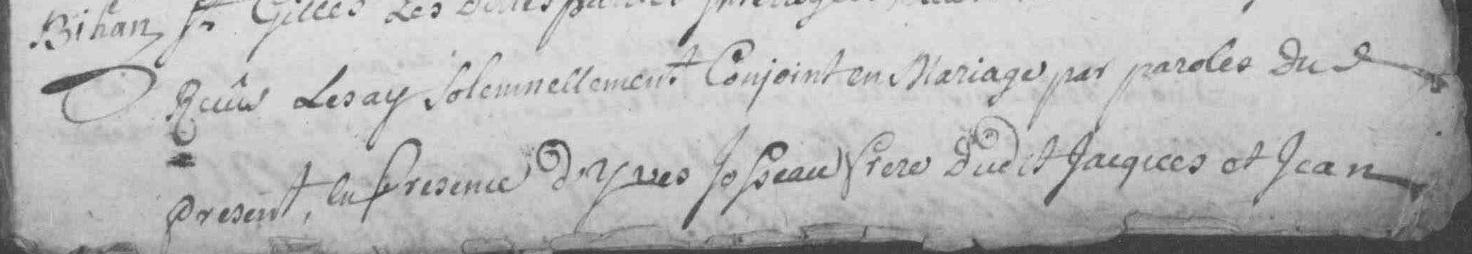 Bihan, St Gilles Les dittes parties
Recûs Lesay Solemnellement Conjoint en Mariage par paroles Du
present, En presence D'Yves Josseau frere Dudit Jacques et Jean